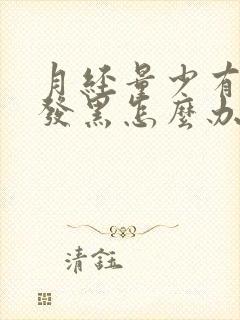 月经量少有
發黑怎麼办
清鈺